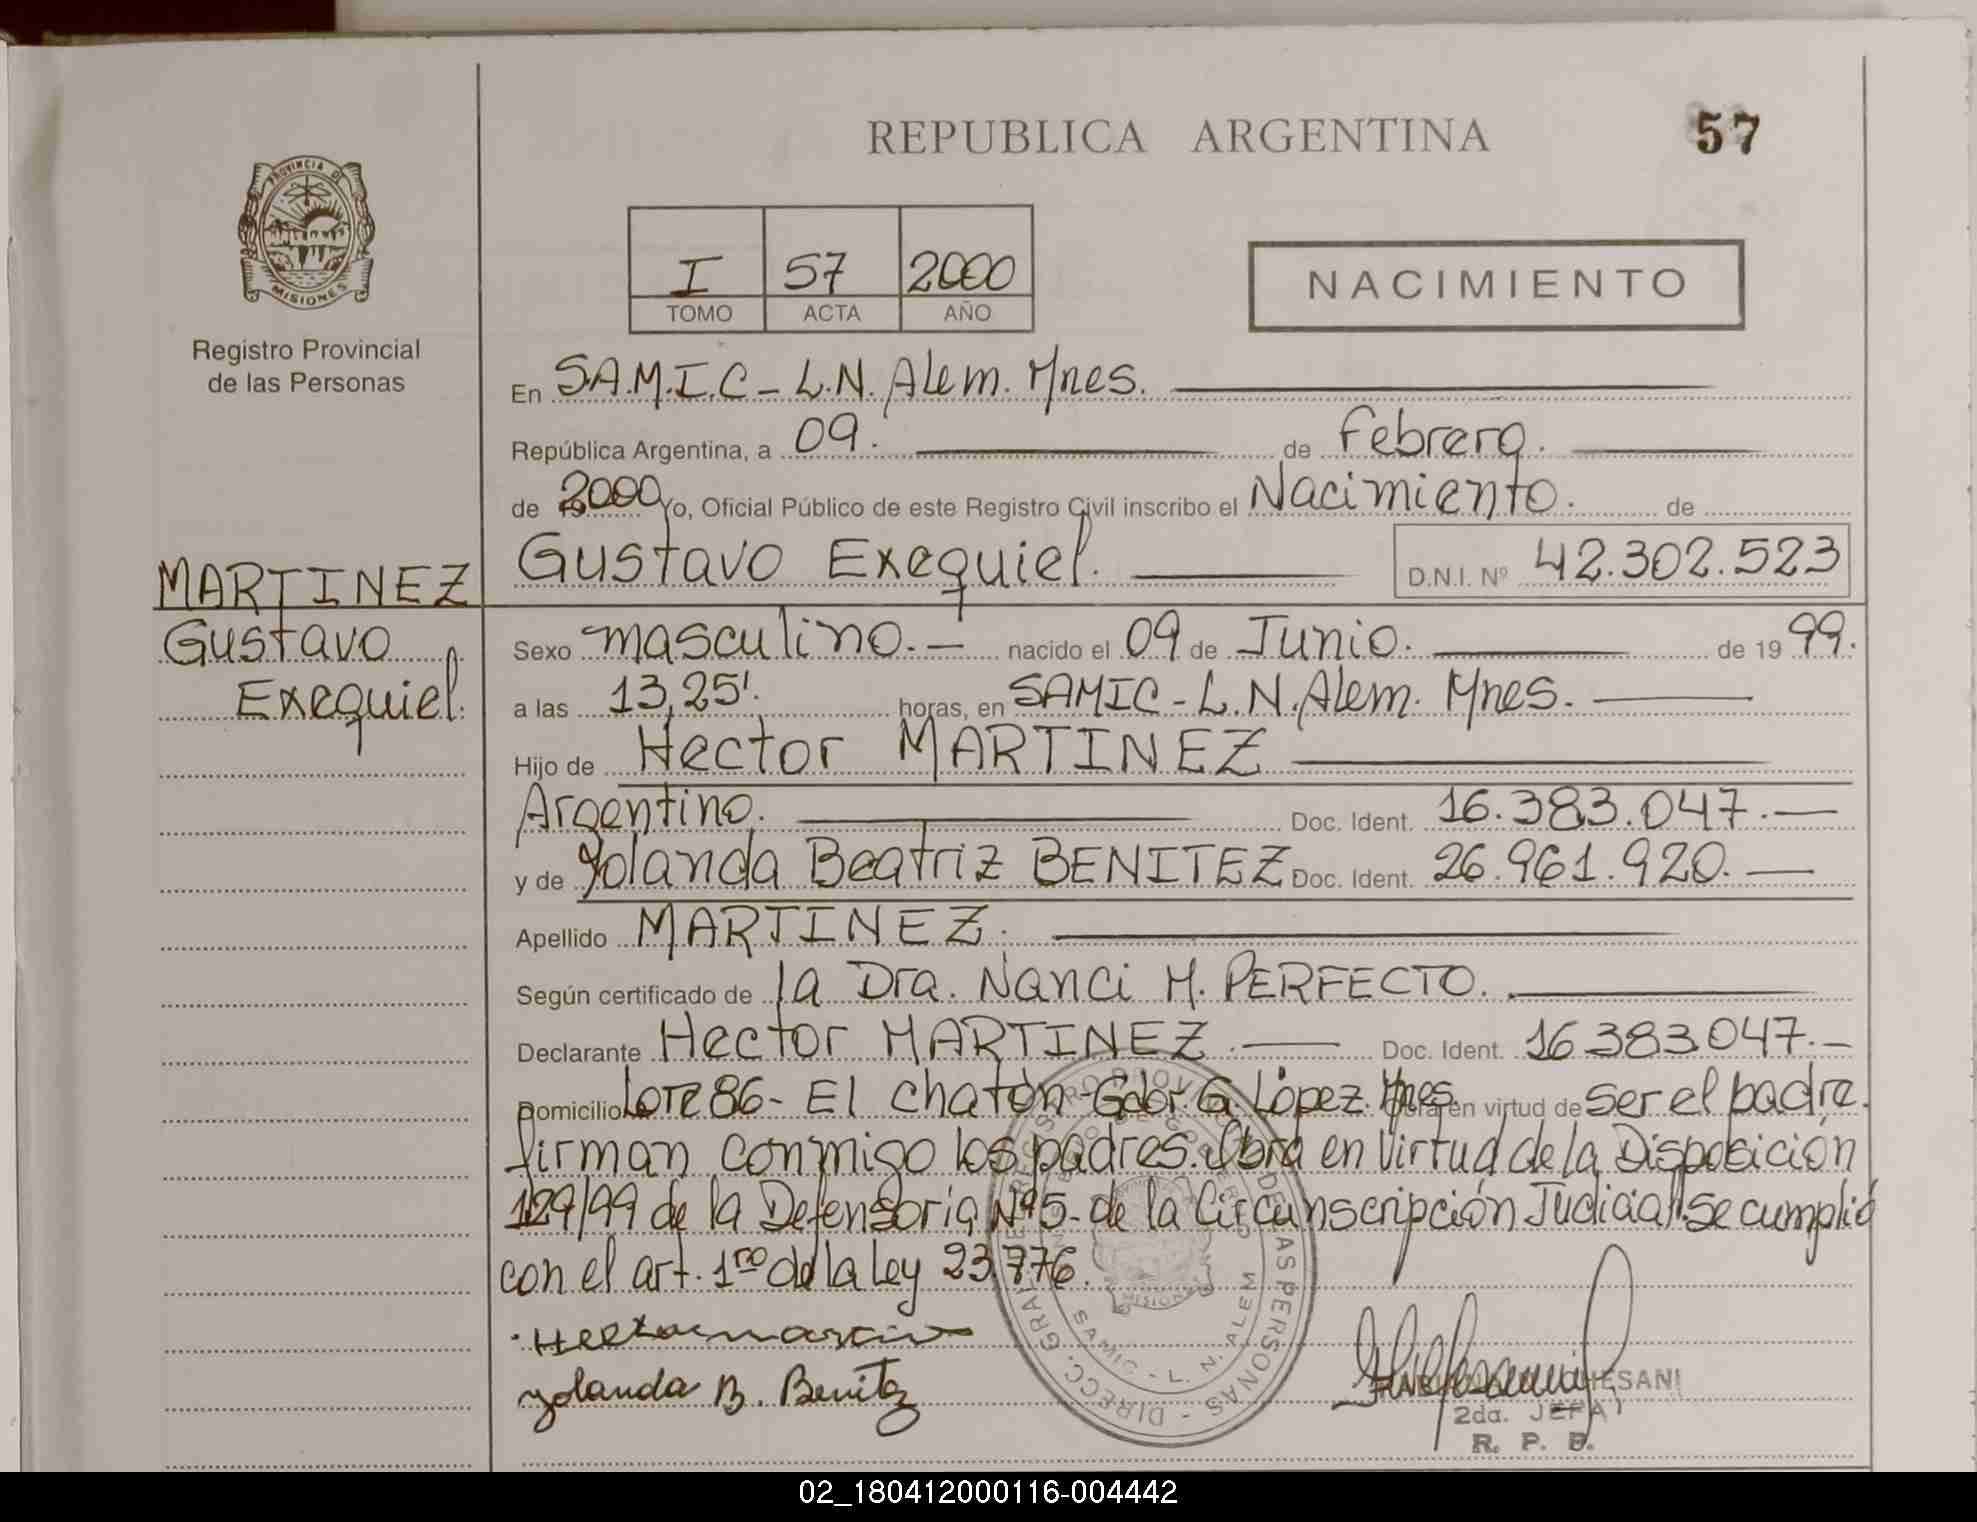 REPUBLICA ARGENTINA
57
PROVINCIA DE
MISIONES
Registro Provincial
de las Personas
I 57 2000
TOMO ACTA AÑO
NACIMIENTO
En S.A.M.I.C - L.N. Alem. Mnes.
República Argentina, a 09. de Febrero.
de 2000 Yo, Oficial Público de este Registro Civil inscribo el Nacimiento. de
Gustavo Exequiel. D.N.I. Nº 42.302.523
MARTINEZ
Gustavo
Exequiel.
Sexo masculino.- nacido el 09 de Junio. de 1999.
a las 13,25'. horas, en SAMIC - L.N. Alem. Mnes.
Hijo de Hector MARTINEZ
Argentino. Doc. Ident. 16.383.047.-
y de Yolanda Beatriz BENITEZ Doc. Ident. 26.961.920.-
Apellido MARTINEZ.
Según certificado de la Dra. Nanci M. PERFECTO.
Declarante Hector MARTINEZ.- Doc. Ident. 16383047.-
Domicilio Lote 86 - El Chatón - Gdor. G. López. Mnes. en virtud de ser el padre.
firman conmigo los padres. Obra en Virtud de la Disposición
129/99 de la Defensoría Nº5- de la Circunscripción Judicial. Se cumplió
con el art. 1ro de la Ley 23.776.
Hector
Yolanda B. Benitez
DIRECC. GRAL. DE LAS PERSONAS
SAMIC - L. N. ALEM
MISIONES
2da. JEFA
R. P. P.
02_180412000116-004442